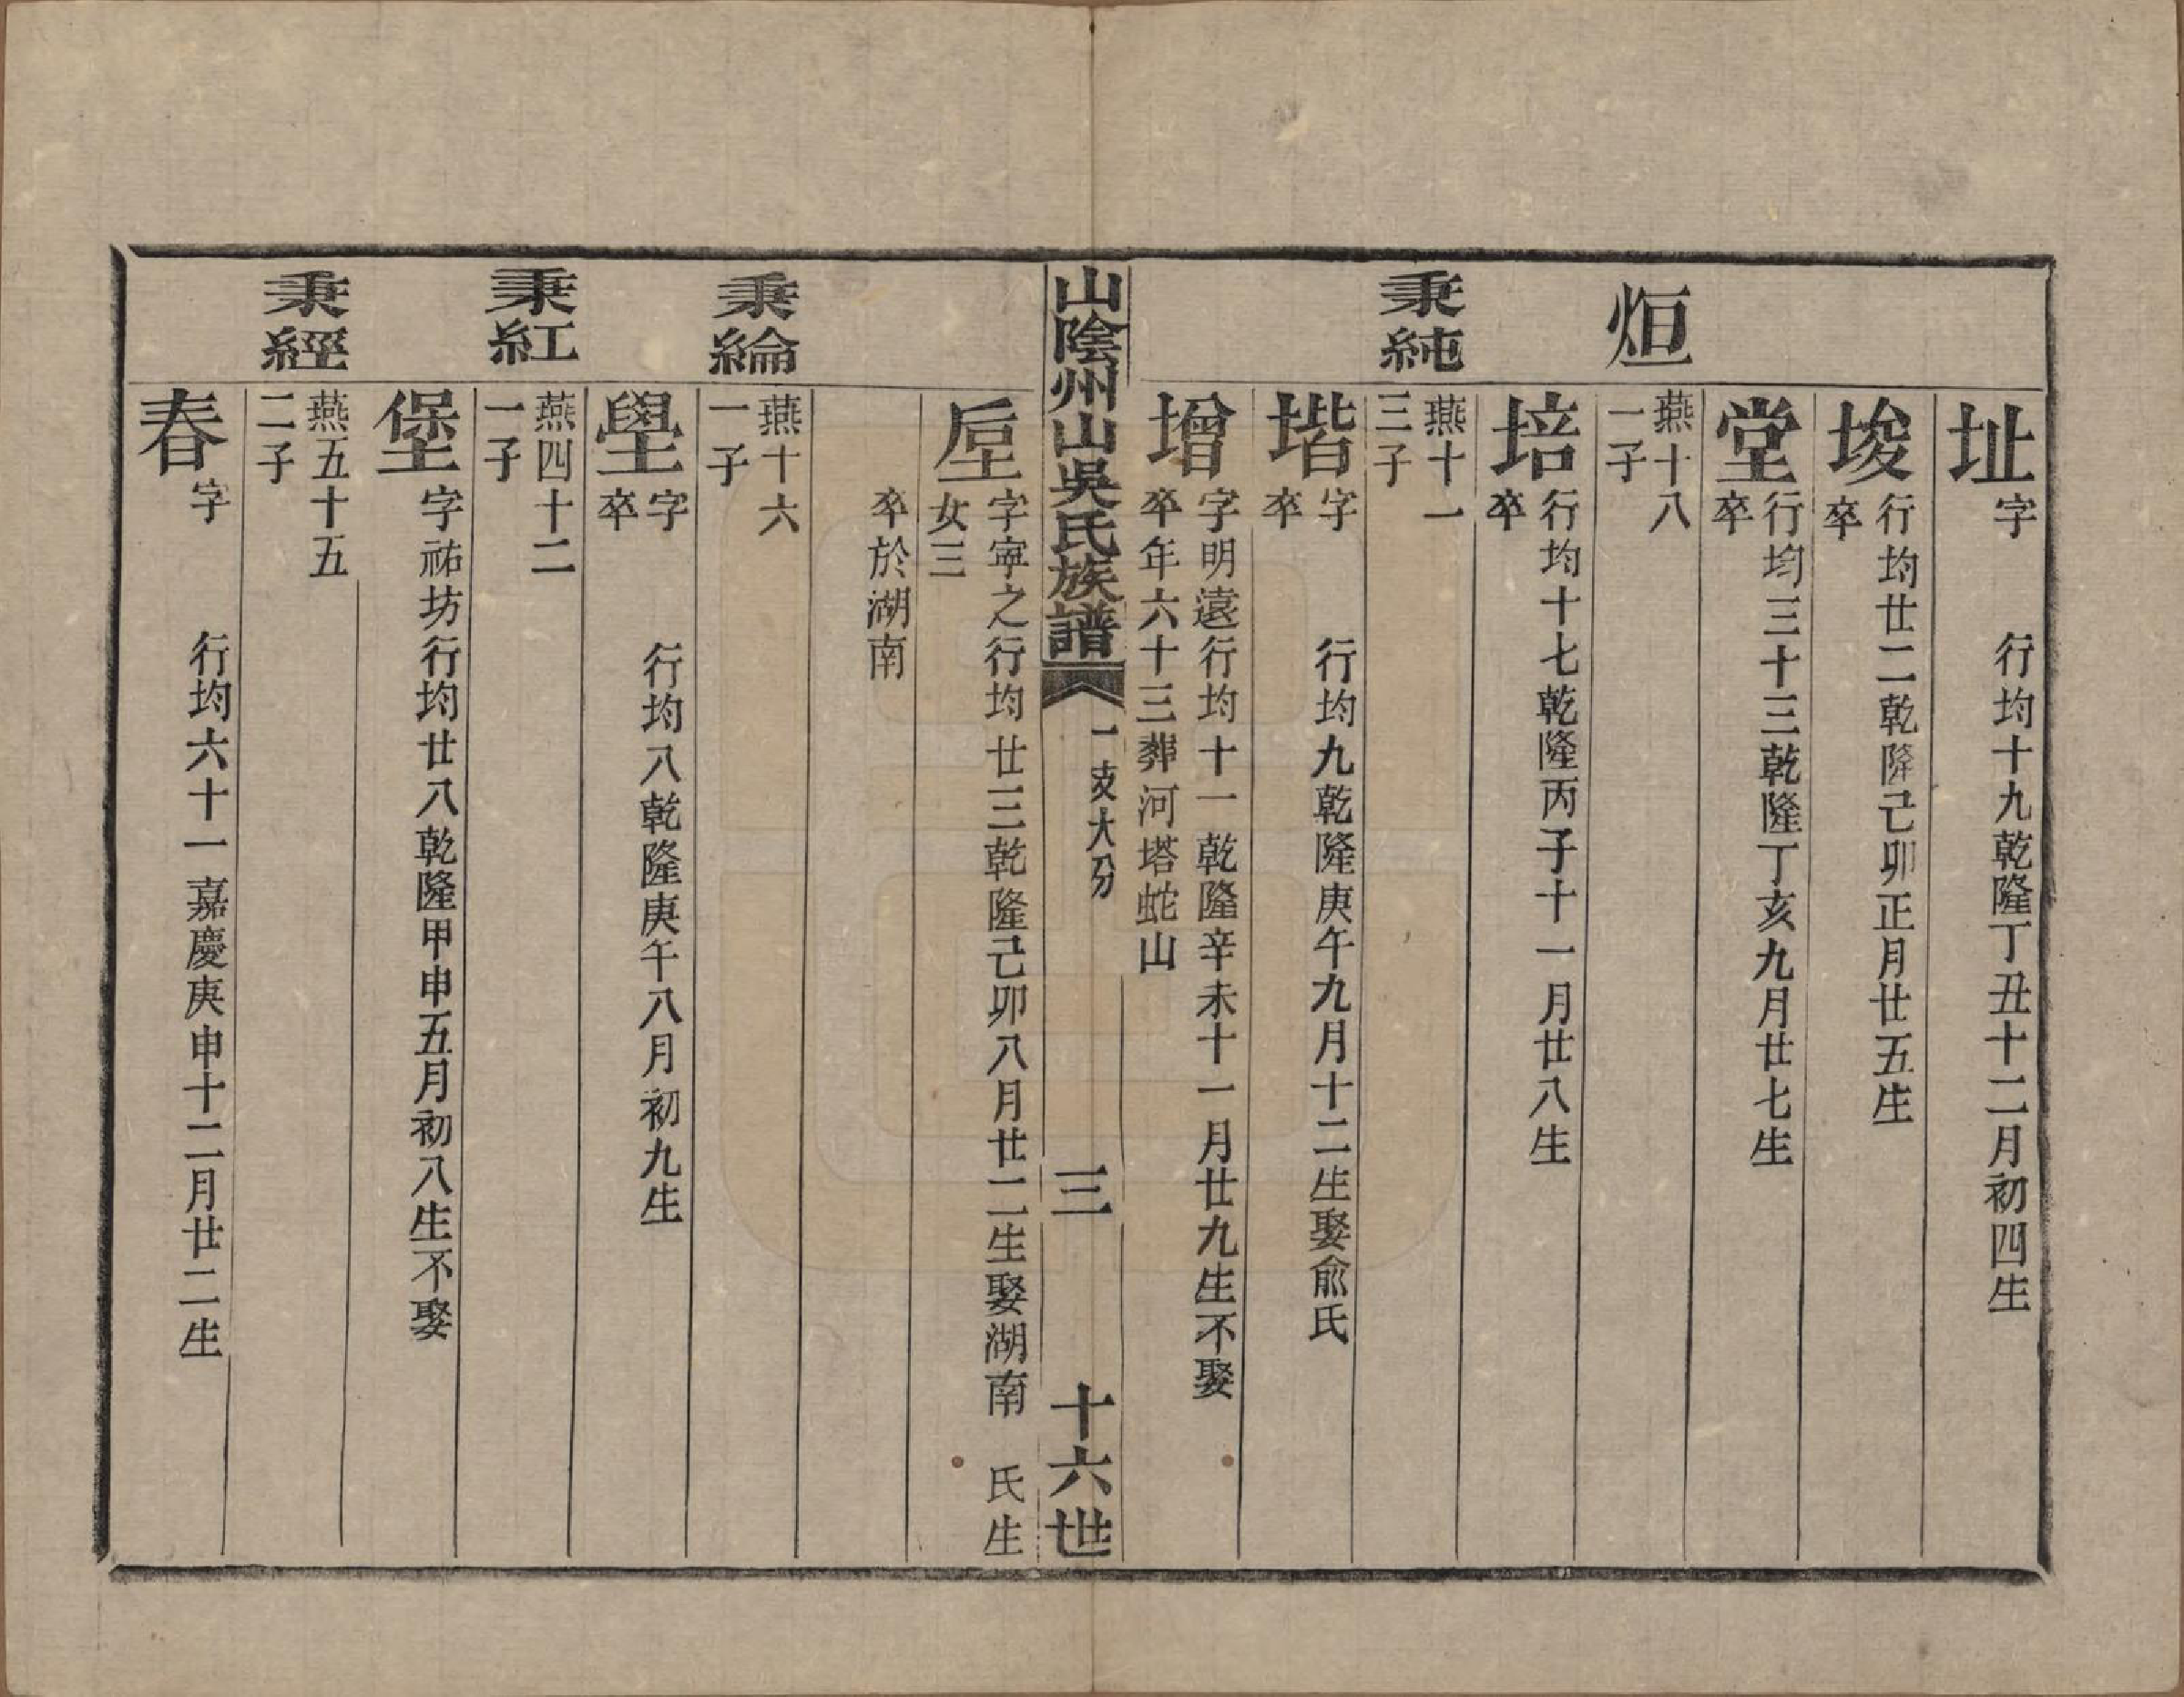 址字　行均十九乾隆丁丑十二月初四生
埈行均廿二乾隆己卯正月廿五生
卒
堂行均三十三乾隆丁亥九月廿七生
卒
烜
燕十八
一子
培行均十七乾隆丙子十一月廿八生
卒
秉純
燕十一
三子
堦字　行均九乾隆庚午九月十二生娶俞氏
卒
增字明遠行均十一乾隆辛未十一月廿九生不娶
卒年六十三葬河塔蛇山
山陰州山吳氏族譜
一支大分
三
十六世
垕字寧之行均廿三乾隆己卯八月廿二生娶湖南　氏生
女三
卒於湖南
秉綸
燕十六
一子
壆字　行均八乾隆庚午八月初九生
卒
秉紅
燕四十二
一子
堡字祐坊行均廿八乾隆甲申五月初八生不娶
秉經
燕五十五
二子
春字　行均六十一嘉慶庚申十二月廿二生